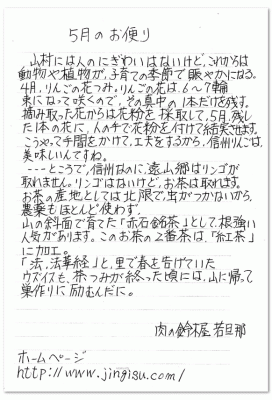 5月のお便り
山村には人のにぎわいはないけど、これからは
動物や植物が、子育ての季節で賑やかになる。
4月、りんごの花つみ。りんごの花は、6〜7輪
束になって咲くので、その真中の1本だけを残す。
摘み取った花からは花粉を採取して、5月、残し
た1本の花に、人の手で花粉を付けて結実させます。
こうやって手間をかけて、工夫をするから、信州りんごは、
美味しいんですね。
---ところで、信州なのに、遠山郷はリンゴが
取れません。リンゴはないけど、お茶は取れます。
お茶の産地としては北限で、虫がつかないから、
農薬もほとんど使わず。
山の斜面で育てた「赤石銘茶」として、根強い
人気があります。このお茶の2番茶は、「紅茶」
に加工。
「法、法華経」と、里で春を告げていた
ウグイスも、茶つみが終った頃には、山に帰って
巣作りに励むんだに。
肉の鈴木屋 若旦那
ホームページ
http://www.jingisu.com/